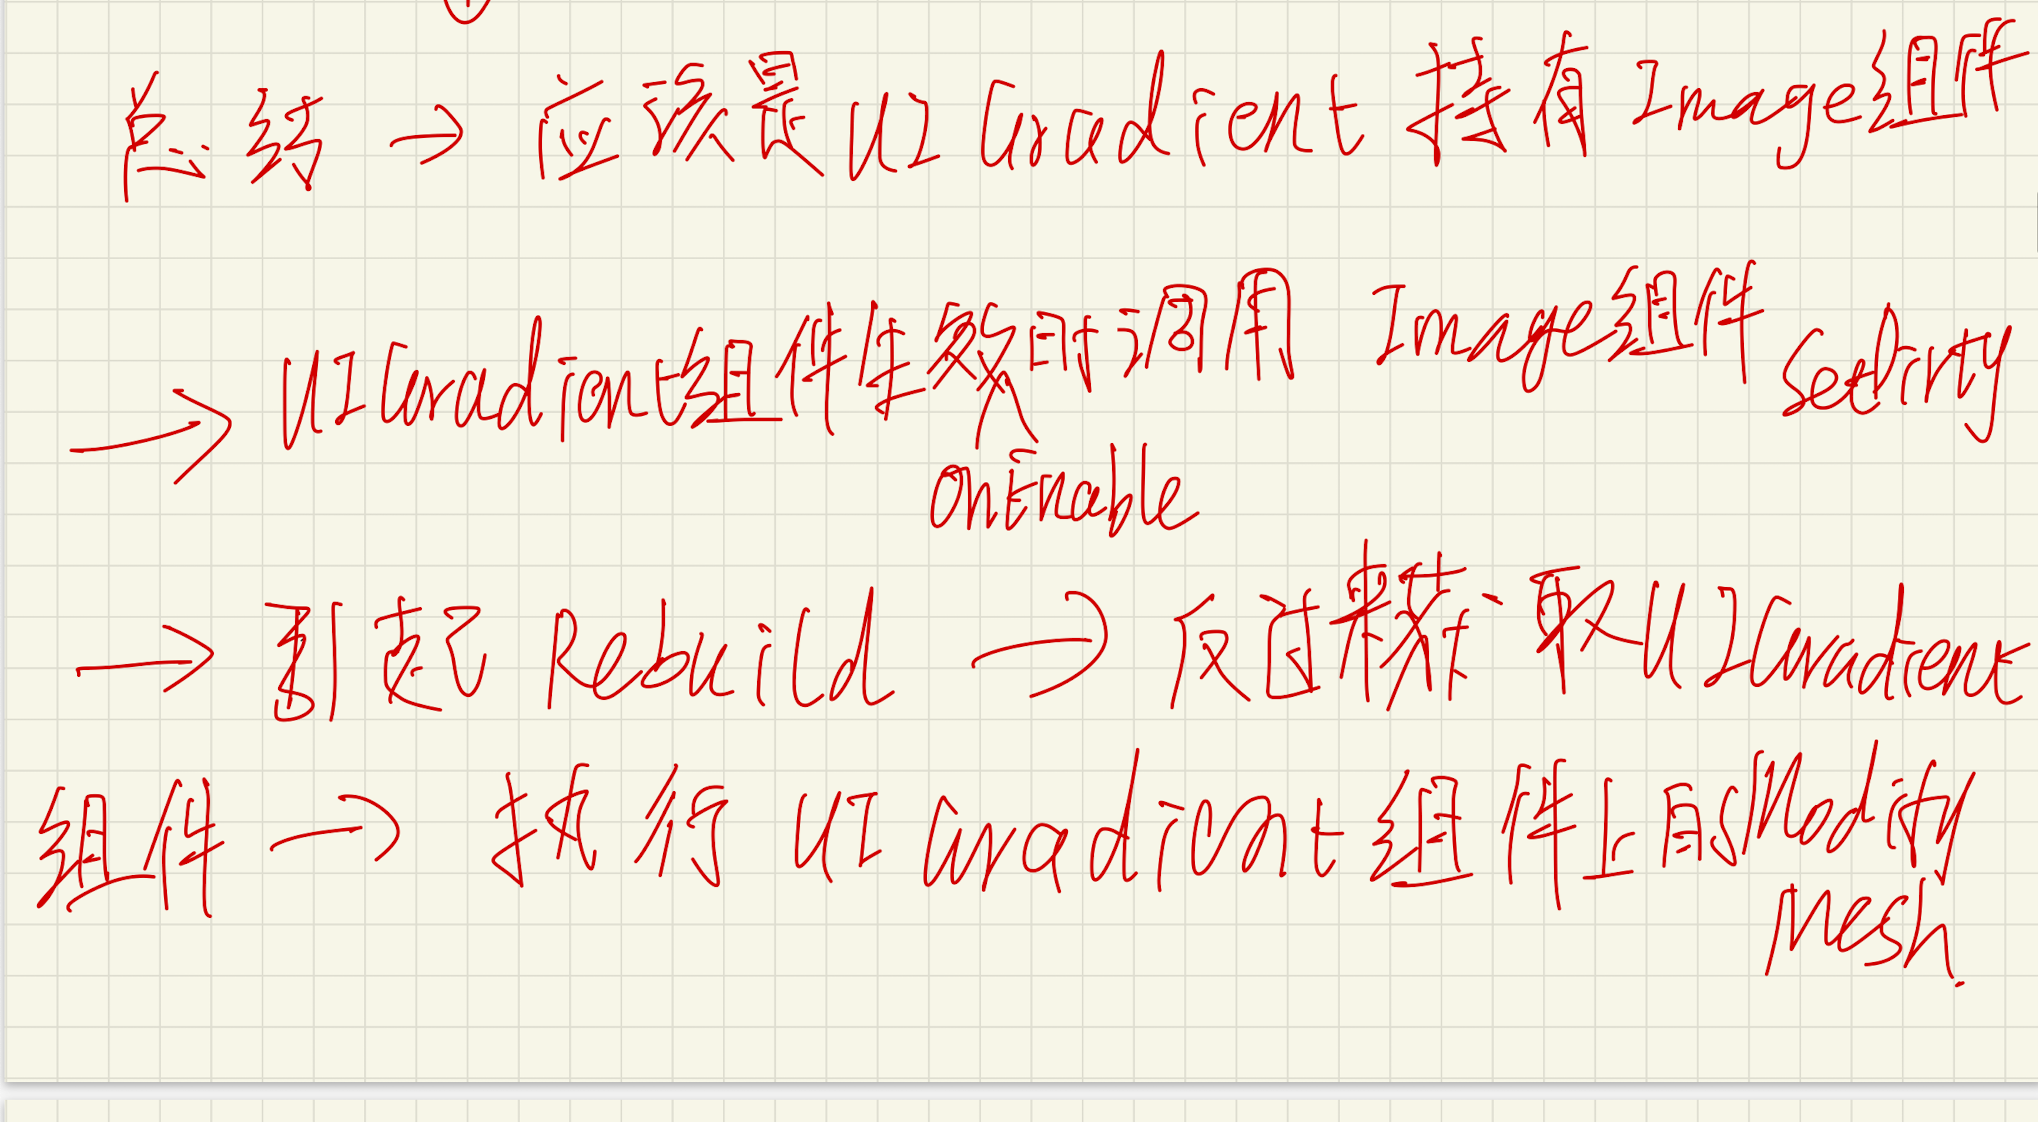 总结 → 应该是 UI Gradient 持有 Image组件
→ UIGradient组件生效时调用 Image组件 SetDirty
OnEnable
→ 引起 Rebuild → 反过来获取UIGradient
组件 → 执行 UI Gradient 组件上的Modify
Mesh.